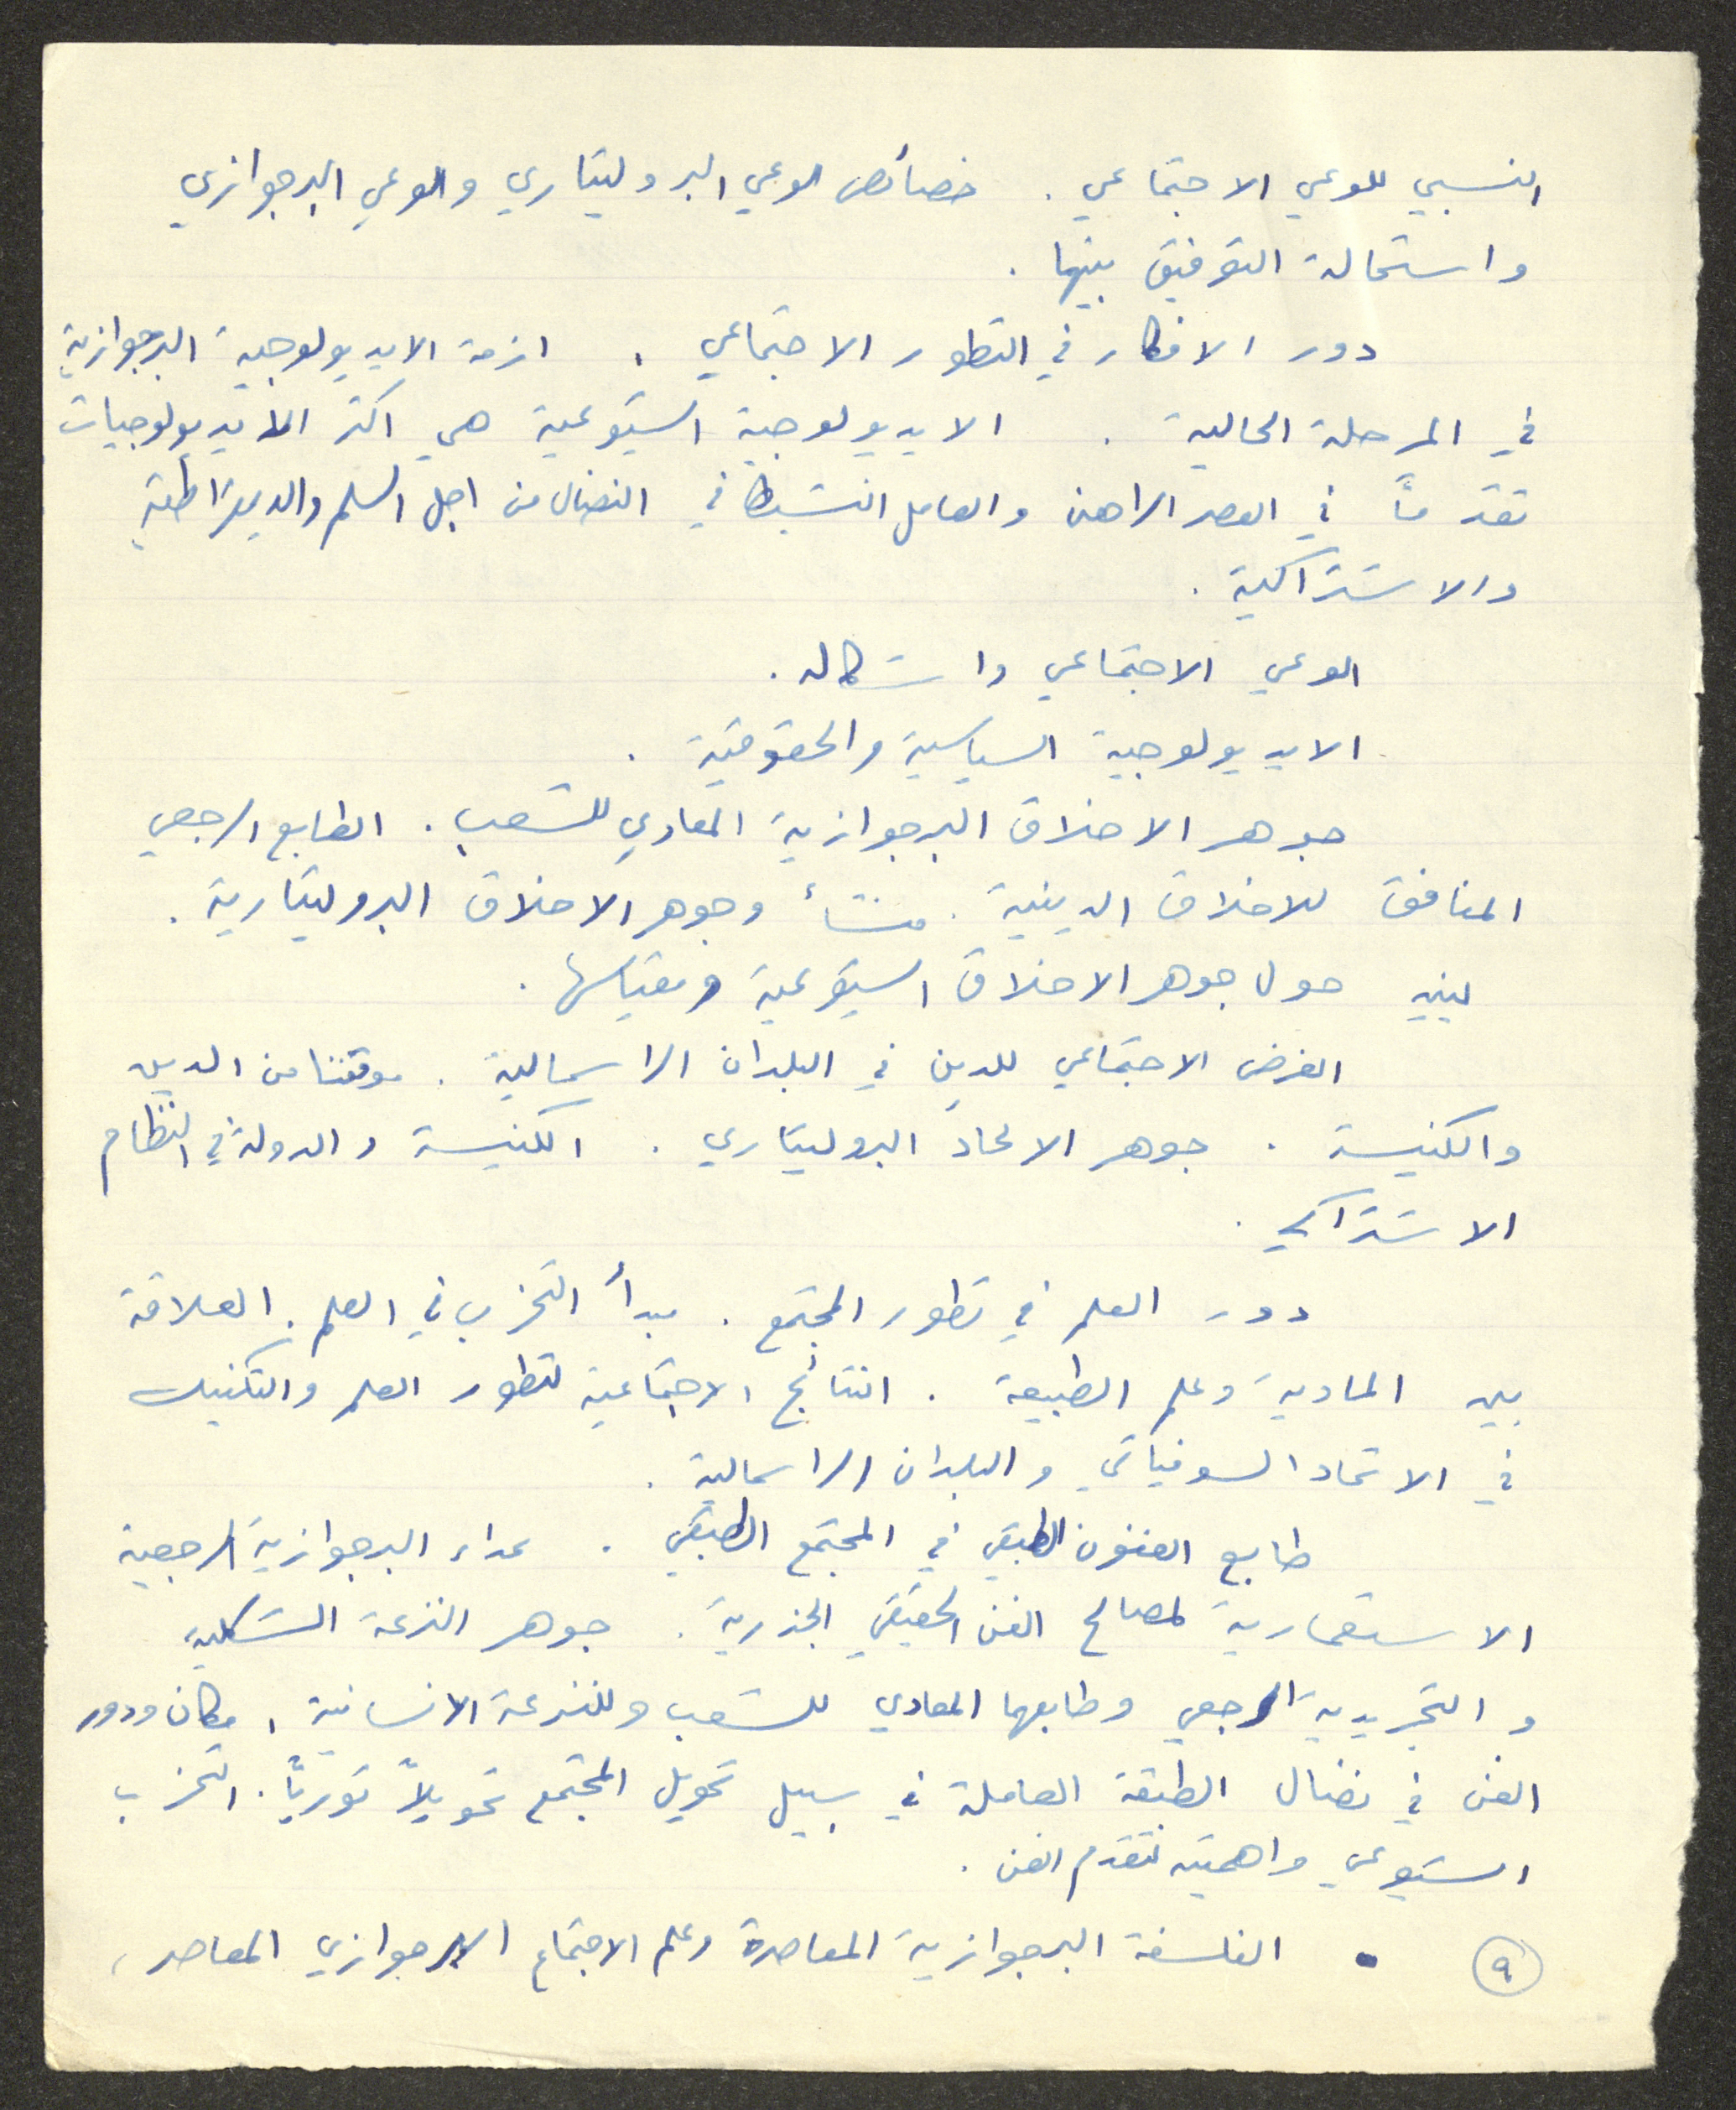 النسبي للوعي الاجتماعي . خصائص الوعي البروليتاري والوعي البرجوازي
واستحالة التوفيق بينهما .
دور الافكار في التطور الاجتماعي . ازمة الايديولوجية البرجوازية
في المرحلة الحالية . الايديولوجية الشيوعية هي اكثر الايديولوجيات
تقدماً في العصر الراهن والعامل النشيط في النضال من اجل السلم والديمقراطية
والاشتراكية .
الوعي الاجتماعي واشكاله .
الايديولوجية السياسية والحقوقية .
جوهر الاخلاق البرجوازية المعادي للشعب . الطابع الرجعي
المنافق للاخلاق الدينية . منشأ وجوهر الاخلاق البروليتارية .
لينين حول جوهر الاخلاق الشيوعية ومقياسها .
الغرض الاجتماعي للدين في البلدان الراسمالية . موقفنا من الدين
والكنيسة . جوهر الالحاد البروليتاري . الكنيسة والدولة في النظام
الاشتراكي .
دور العلم في تطور المجتمع . مبدأ التحزب في العلم . العلاقة
بين المادية وعلم الطبيعة . النتائج الاجتماعية لتطور العلم والتكنيك
في الاتحاد السوفياتي والبلدان الراسمالية .
طابع الفنون الطبقي في المجتمع الطبقي . عداء البرجوازية الرجعية
الاستعمارية لمصالح الفن الحقيقي الجذرية . جوهر النزعة الشكلية
والتجريدية الرجعي وطابعها المعادي للشعب وللنزعة الانسانية . مكان ودور
الفن في نضال الطبقة العاملة في سبيل تحويل المجتمع تحويلاً ثورياً . التحزب
الشيوعي واهميته لتقدم الفن .
٩ • الفلسفة البرجوازية المعاصرة وعلم الاجتماع البرجوازي المعاصر ،